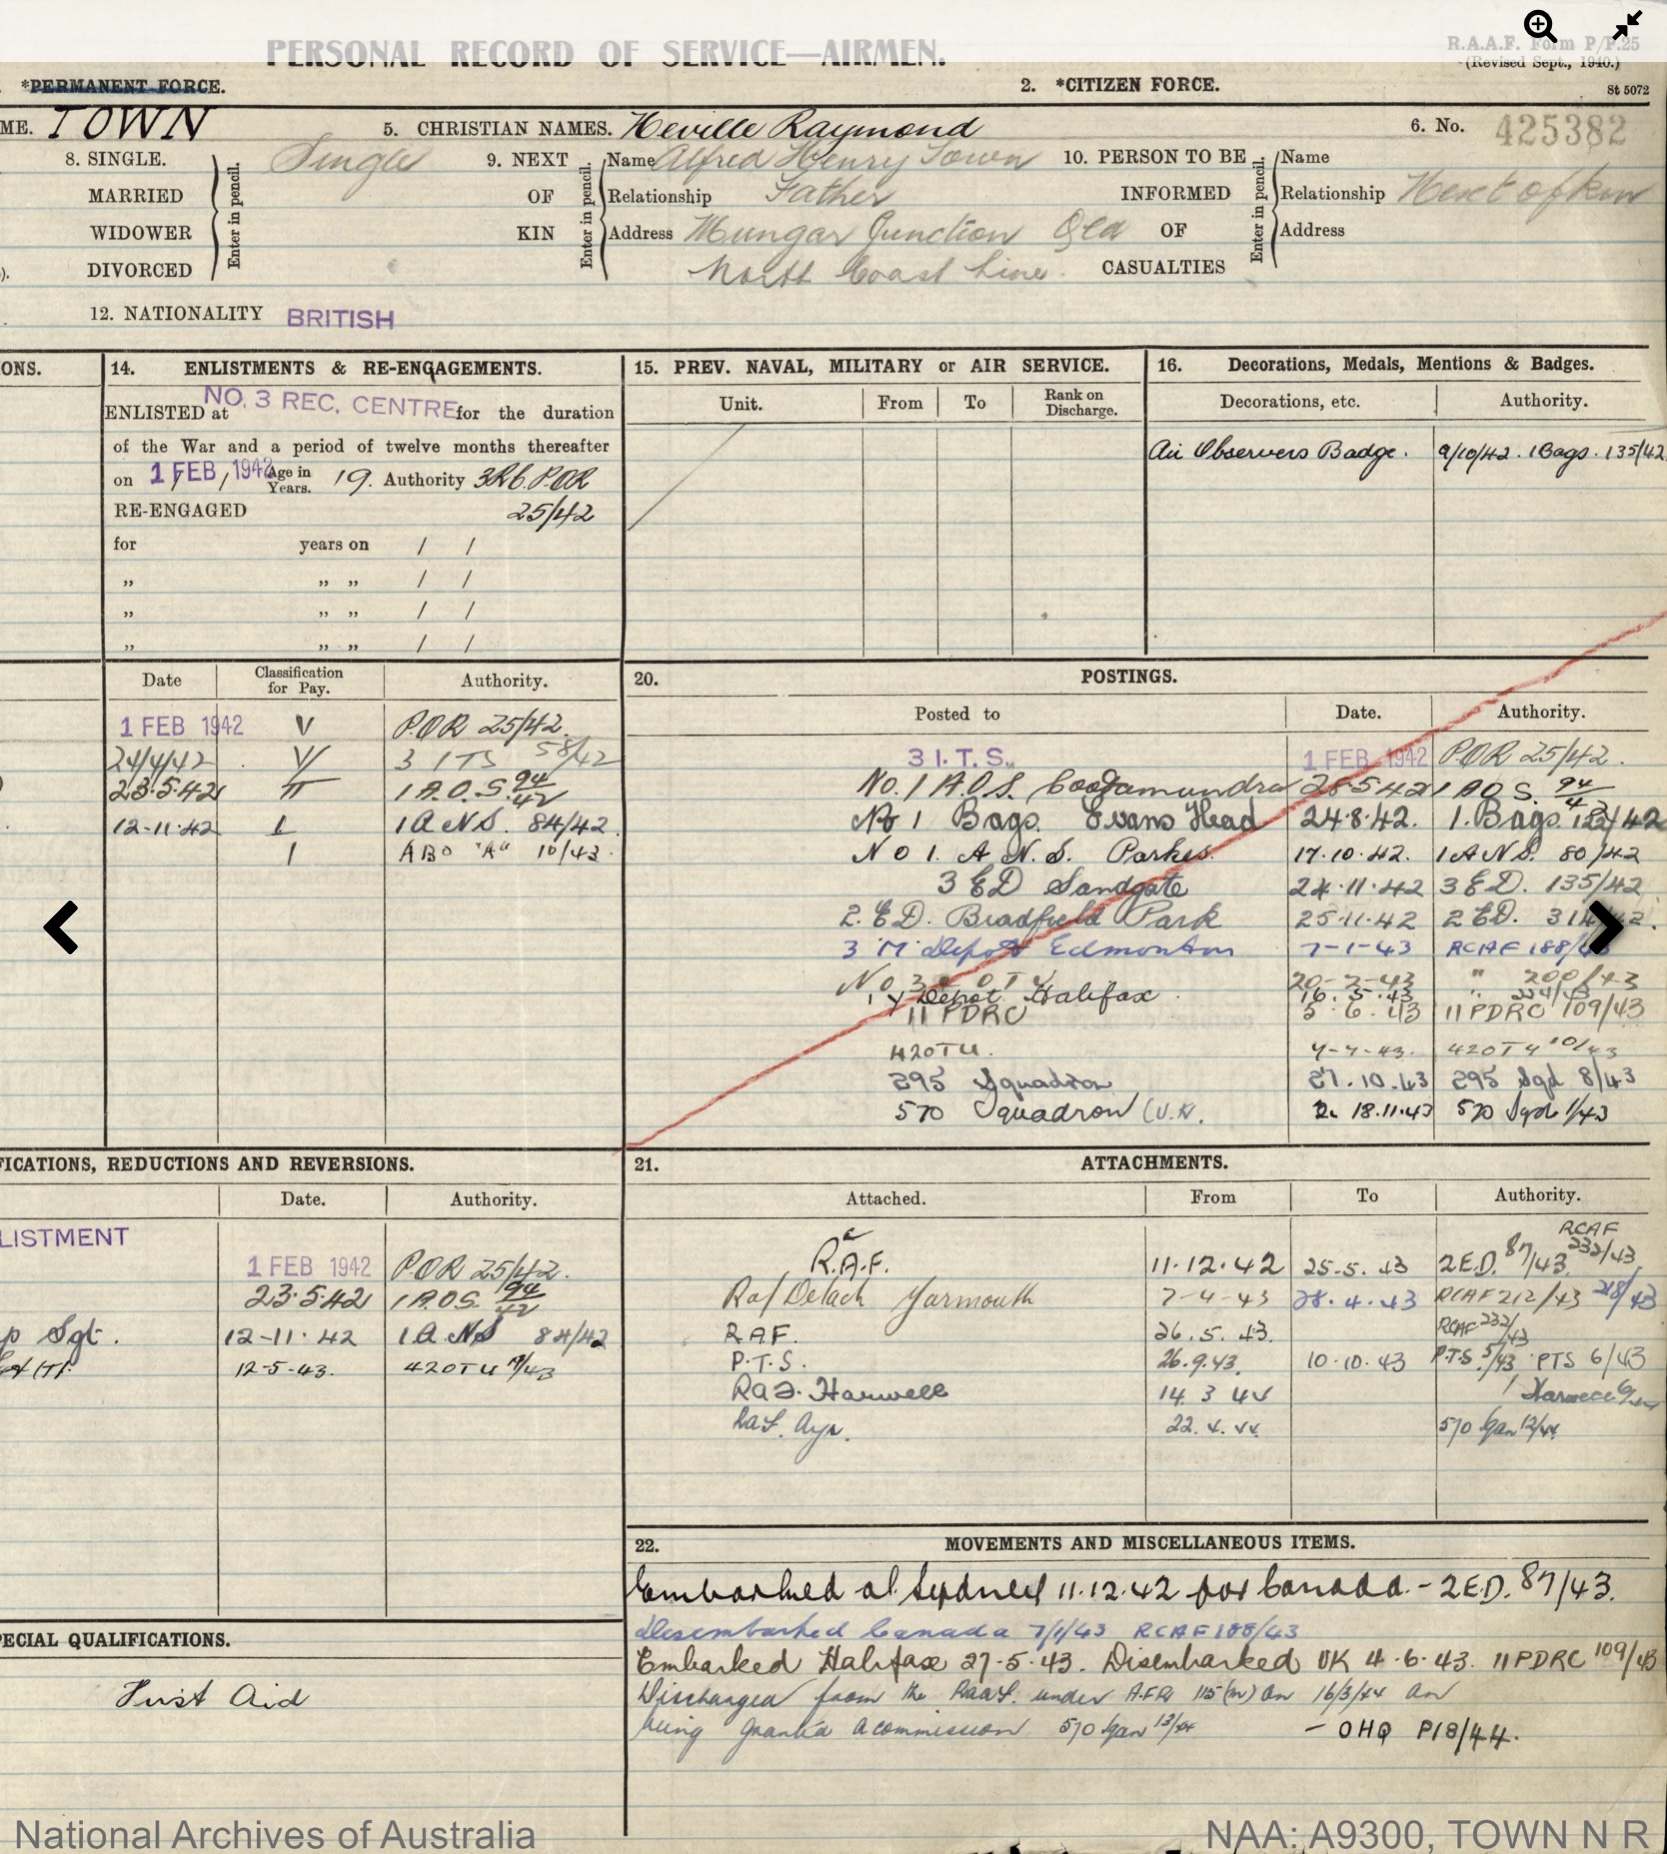 PERSONAL RECORD OF SERVICE—AIRMEN.
R.A.A.F. Form P/P.25
(Revised Sept., 1940.)
*PERMANENT FORCE.
2. *CITIZEN FORCE.
St 5072
ME. TOWN 5. CHRISTIAN NAMES. Neville Raymond 6. No. 425382
8. SINGLE. Single 9. NEXT Name Alfred Henry Town 10. PERSON TO BE Name
MARRIED OF Relationship Father INFORMED Relationship Next of kin
WIDOWER KIN Address Mungar Junction Qld OF Address
DIVORCED North Coast Line. CASUALTIES
Enter in pencil. Enter in pencil. Enter in pencil.
12. NATIONALITY BRITISH
ONS. 14. ENLISTMENTS & RE-ENGAGEMENTS.
ENLISTED at NO. 3 REC. CENTRE for the duration
of the War and a period of twelve months thereafter
on 1 FEB, 1942 Age in Years. 19. Authority 3RC. P.O.R
RE-ENGAGED 25/42
for years on / /
„ „ „ / /
„ „ „ / /
„ „ „ / /
15. PREV. NAVAL, MILITARY or AIR SERVICE.
Unit. From To Rank on Discharge.
16. Decorations, Medals, Mentions & Badges.
Decorations, etc. Authority.
Air Observers Badge. 9/10/42. 1Bags. 135/42
Date Classification for Pay. Authority.
1 FEB 1942 V P.O.R 25/42.
24/4/42 V 3 ITS 58/42
23.5.42 II 1 A.O.S. 94/42
12-11-42 I 1 A N.S. 84/42
1 ABO "A" 10/43.
20. POSTINGS.
Posted to Date. Authority.
3 I.T.S. 1 FEB 1942 P.O.R 25/42.
No. 1 A.O.S. Cootamundra 23-5-42 1 AOS. 94/42
No 1 Bags. Evans Head 24.8.42. 1. Bags. /42
No 1. A.N.S. Parkes. 17.10.42. 1ANS. 80/42
3 ED Sandgate 24.11.42 3 E.D. 135/42
2. E.D. Bradfield Park 25.11.42 2 ED.
3 'M' Depot Edmonton 7-1-43 RCAF 188/43
No 3 OTU 20-2-43 " 200/43
1 Y Depot Halifax. 16.5.43
11 PDRC 5.6.43 11 PDRC 109/43
42OTU. 42OTU 10/43
295 Squadron 27.10.43 295 Sqd 8/43
570 Squadron (U.K. 18.11.43 570 Sqdn 1/43
FICATIONS, REDUCTIONS AND REVERSIONS.
Date. Authority.
LISTMENT
1 FEB 1942 P.O.R 25/42.
23.5.42 1 AOS. 94/42
p Sgt. 12-11-42 1 A NS 84/42
12-5-43. 42OTU /43
21. ATTACHMENTS.
Attached. From To Authority.
R.C.A.F. 11.12.42 25.5.43 2E.D. 87/43. RCAF 232/43
Raf Detach Yarmouth 7-4-43 28.4.43 RCAF 212/43 218/43
R.A.F. 26.5.43. RCAF 232/43
P.T.S. 26.9.43. 10.10.43 P.T.S. 5/43 PTS 6/43
RAF. Harwell 14 3 44 Harwell
Raf. Ayr. 22.4.44. 570 Sqn 12/44
22. MOVEMENTS AND MISCELLANEOUS ITEMS.
Embarked at Sydney 11.12.42 for Canada. - 2E.D. 87/43.
Disembarked Canada 7/1/43 RCAF 188/43
Embarked Halifax 27-5-43. Disembarked UK 4.6.43. 11PDRC 109/43
Discharged from the RAAF. under A.F.R. 115(m) on 16/3/44 on
being granted a commission 570 Sqn 13/44 - OHQ P18/44.
PECIAL QUALIFICATIONS.
First Aid
National Archives of Australia
NAA: A9300, TOWN N R